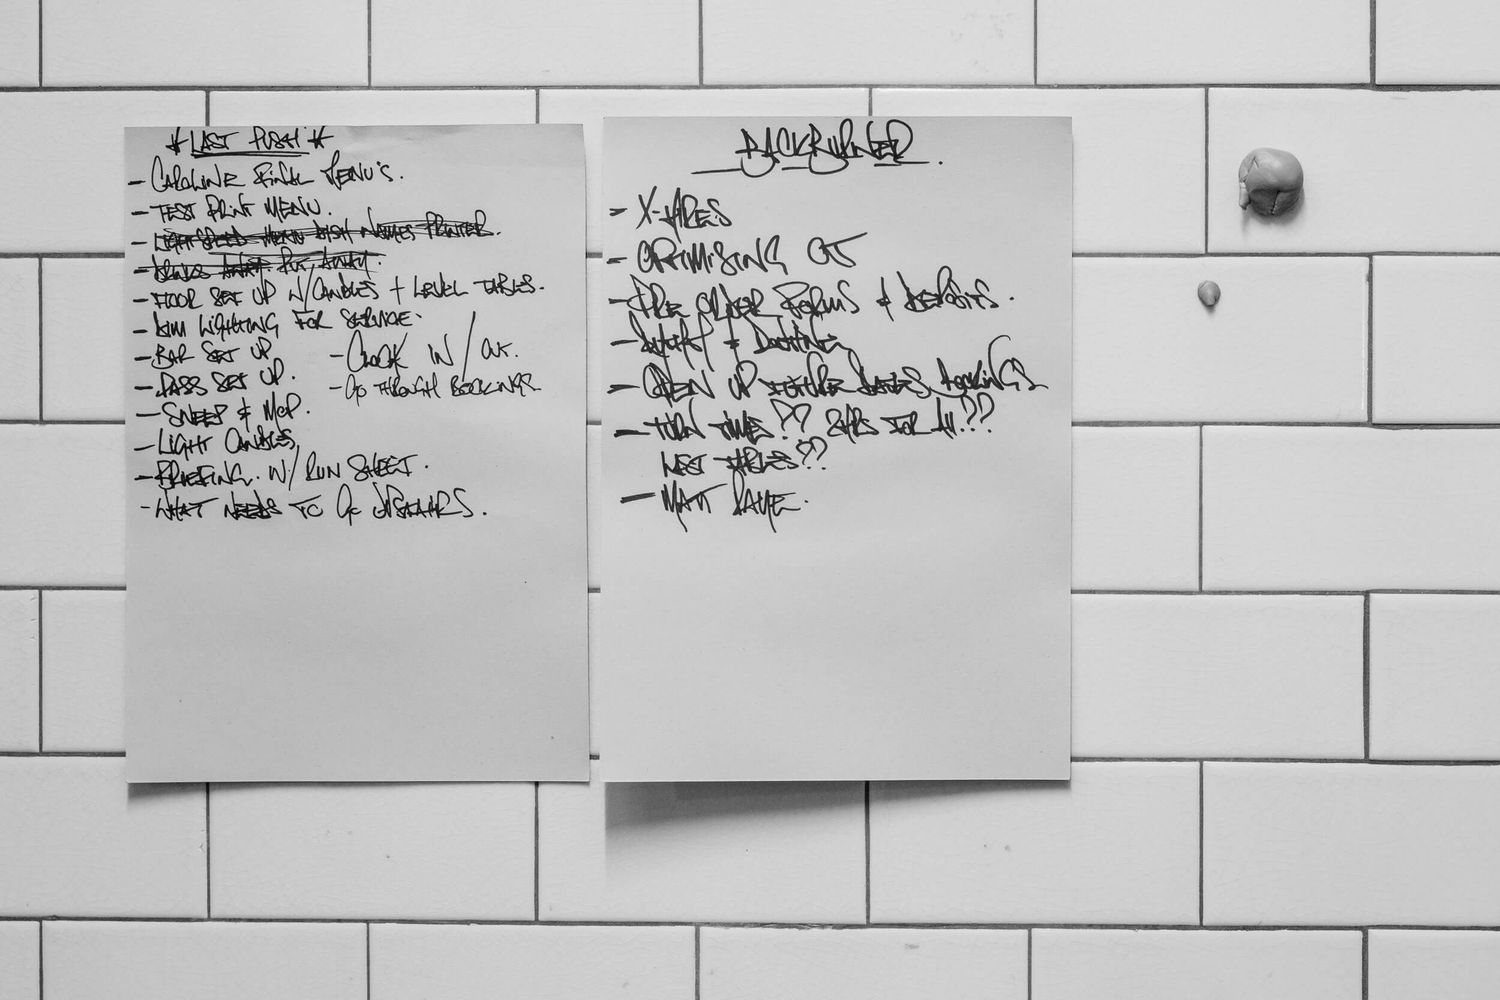 * LAST PUSH *
- CAROLINE FINAL MENU'S.
- TEST PRINT MENU.
- LIGHTSPEED MENU DISH NAMES PRINTER.
- DRINKS AWAY. PUT AWAY.
- FLOOR SET UP W/CANDLES + LEVEL TABLES.
- DIM LIGHTING FOR SERVICE.
- BAR SET UP.
- PASS SET UP.
- SWEEP & MOP.
- LIGHT CANDLES
- BRIEFING. W/ RUN SHEET.
- WHAT NEEDS TO GO UPSTAIRS.
- CLOCK IN / OUT.
- GO THROUGH BOOKINGS.
BACKBURNER.
- X-HIRES
- OPTIMISING OT
- PRE ORDER FORMS & DEPOSITS.
- & DOCKING
- OPEN UP FUTURE DATES BOOKINGS
- TURN TIMES?? 2HRS FOR ALL???
TABLES??
- MATT